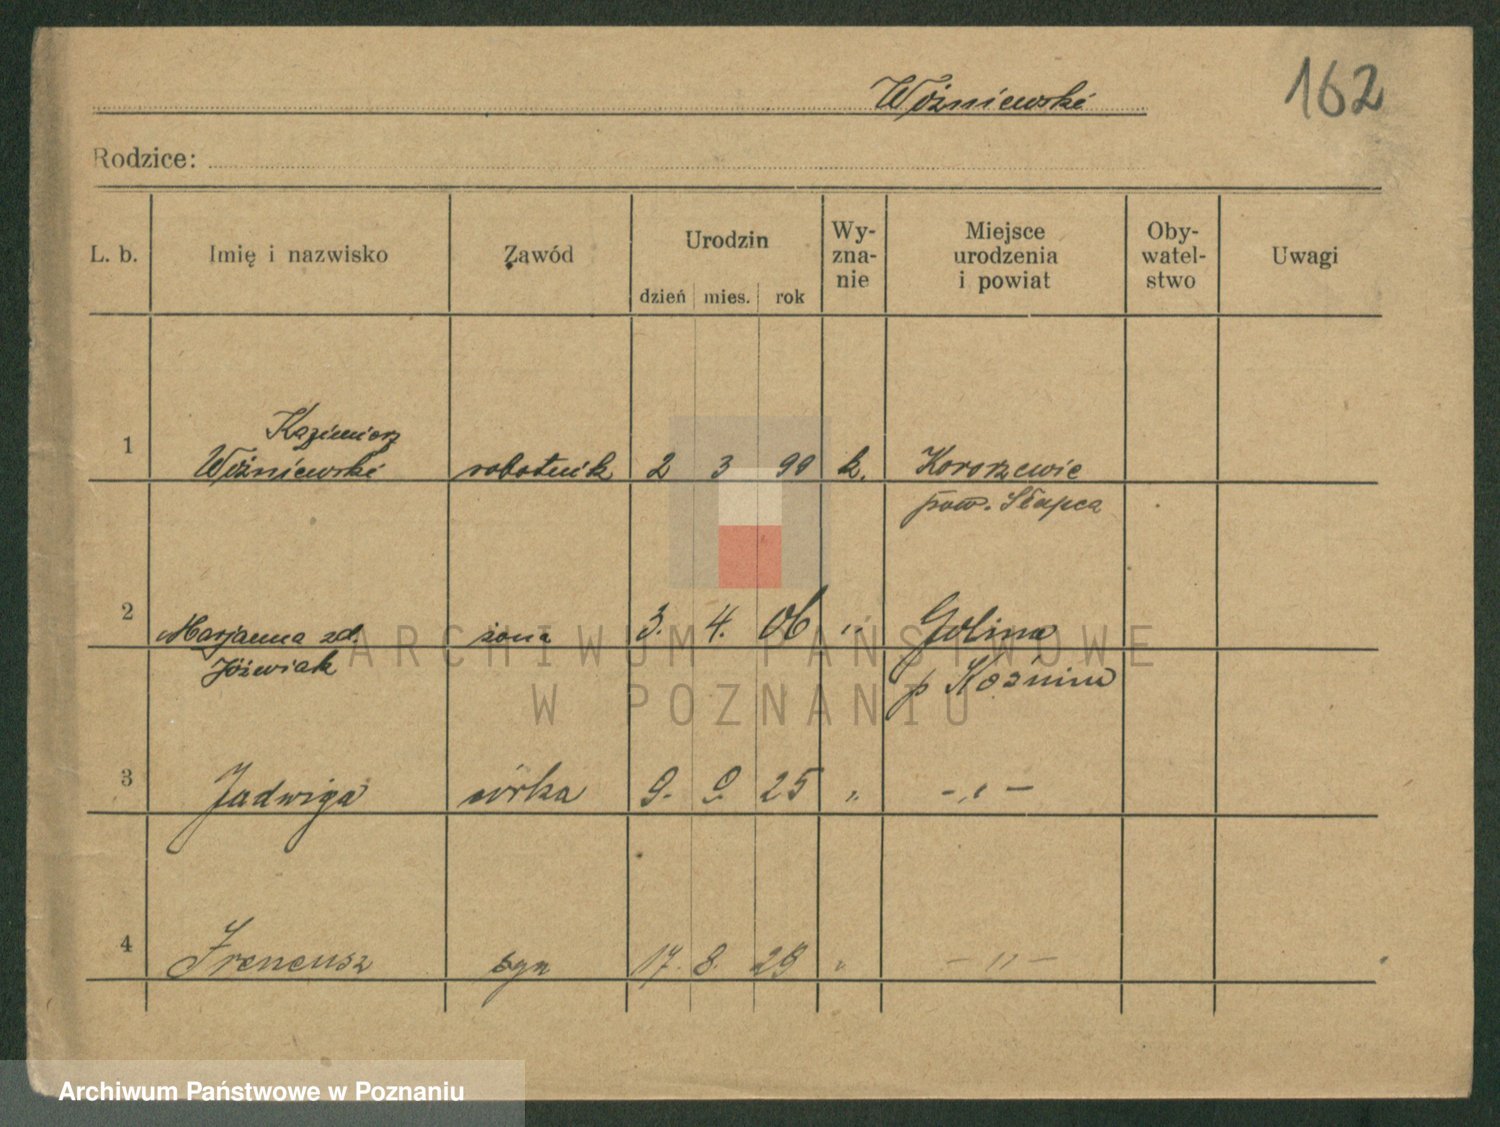 Wóżniewski
162
Rodzice:
L. b. Imię i nazwisko Zawód Urodzin dzień mies. rok Wy-zna-nie Miejsce urodzenia i powiat Oby-watel-stwo Uwagi
Kazimierz
1 Wóżniewski robotnik 2 3 99 k.
pow. Słupca
2 Marjanna zd. żona 3. 4. 06 " Golina
Jóźwiak p Koźmin
3 Jadwiga córka 9. 9. 25 " - " -
4 Ireneusz syn 17. 8. 28 " - " -
ARCHIWUM PAŃSTWOWE
W POZNANIU
Archiwum Państwowe w Poznaniu